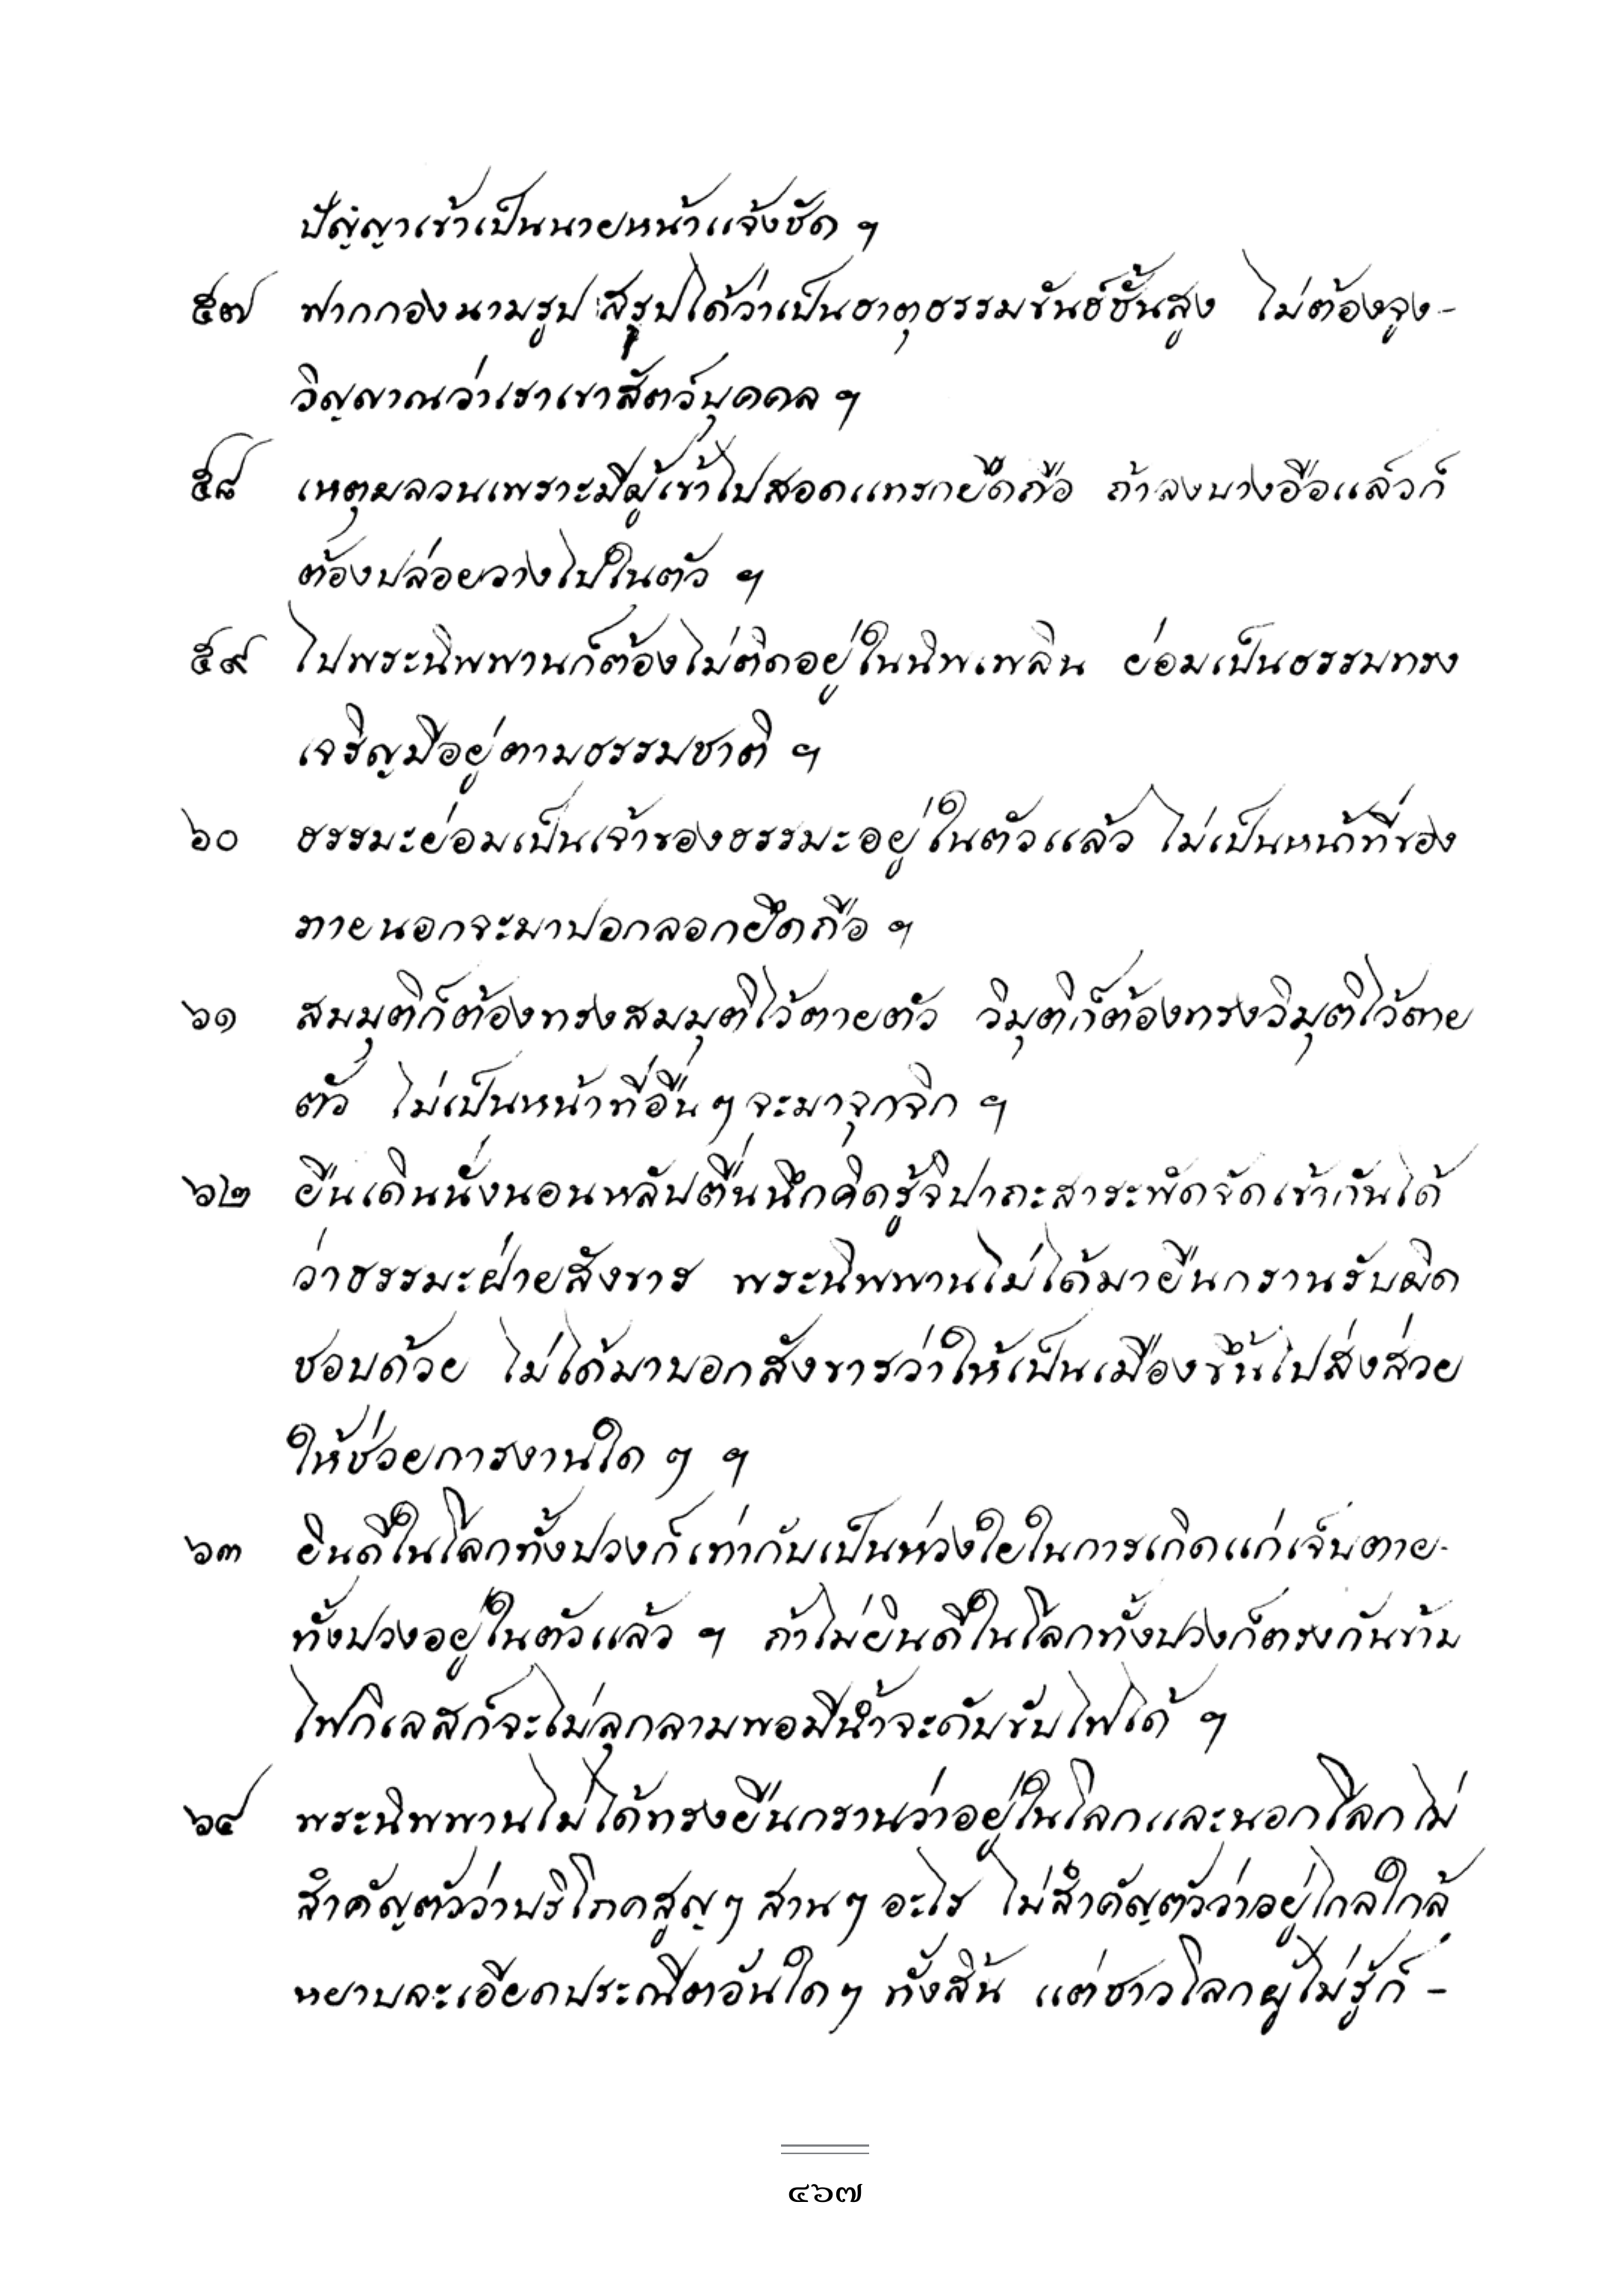 ปัญญาเข้าเป็นนายหน้าแจ้งชัด ฯ
๕๗ ฟากกองนามรูป สรุปได้ว่าเป็นธาตุธรรมขันธ์ชั้นสูง ไม่ต้องจูง-
วิญญาณว่าเราเขาสัตว์บุคคล ฯ
๕๘ เหตุผลวนเพราะมีผู้เข้าไปสอดแทรกยึดถือ ถ้าลงบางอือแล้วก็
ต้องปล่อยวางไปในตัว ฯ
๕๙ ไปพระนิพพานก็ต้องไม่ติดอยู่ในนิพเพลิน ย่อมเป็นธรรมทรง
เจริญมีอยู่ตามธรรมชาติ ฯ
๖๐ ธรรมะย่อมเป็นเจ้าของธรรมะอยู่ในตัวแล้ว ไม่เป็นหน้าที่ของ
ภายนอกจะมาปอกลอกยึดถือ ฯ
๖๑ สมมุติก็ต้องทรงสมมุติไว้ตายตัว วิมุติก็ต้องทรงวิมุติไว้ตาย
ตัว ไม่เป็นหน้าที่อื่นๆ จะมาจุกจิก ฯ
๖๒ ยืนเดินนั่งนอนหลับตื่นนึกคิดรู้จิปาถะสาระพัดจัดเข้ากันได้
ว่าธรรมะฝ่ายสังขาร พระนิพพานไม่ได้มายืนกรานรับผิด
ชอบด้วย ไม่ได้มาบอกสังขารว่าให้เป็นเมืองขึ้นไปส่งส่วย
ให้ช่วยการงานใด ๆ ฯ
๖๓ ยินดีในโลกทั้งปวงก็เท่ากับเป็นห่วงใยในการเกิดแก่เจ็บตาย-
ทั้งปวงอยู่ในตัวแล้ว ฯ ถ้าไม่ยินดีในโลกทั้งปวงก็ตรงกันข้าม
ไฟกิเลสก็จะไม่ลุกลามพอมีน้ำจะดับขับไฟได้ ฯ
๖๔ พระนิพพานไม่ได้ทรงยืนกรานว่าอยู่ในโลกและนอกโลก ไม่
สำคัญตัวว่าบริโภคสูญๆ สานๆ อะไร ไม่สำคัญตัวว่าอยู่ไกลใกล้
หยาบละเอียดประณีตอันใดๆ ทั้งสิ้น แต่ชาวโลกผู้ไม่รู้ก็ -
๔๖๗